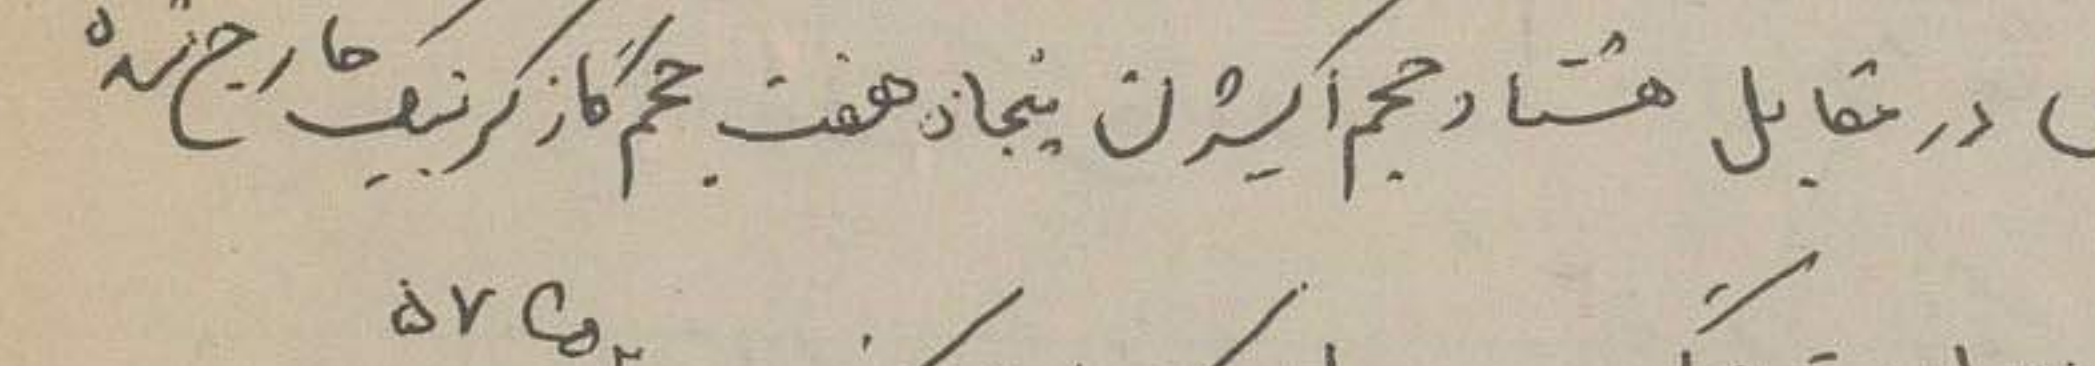 در مقابل هشتاد حجم اکسیژن پنجاه هفت حجم گاز کربنیک خارج شده
۵۷ CO₂